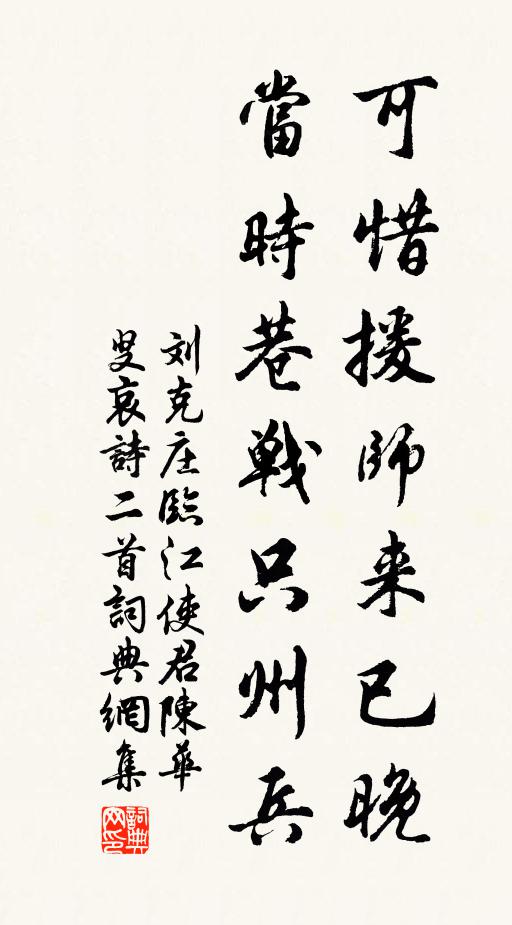 可惜援師来已晚
當時巷戦只州兵
刘克庄臨江使君陳華
叟哀詩二首詞典網集
詞典
网印